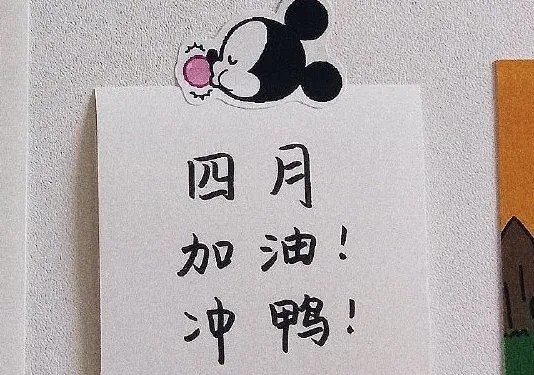 四月
加油！
冲鸭！